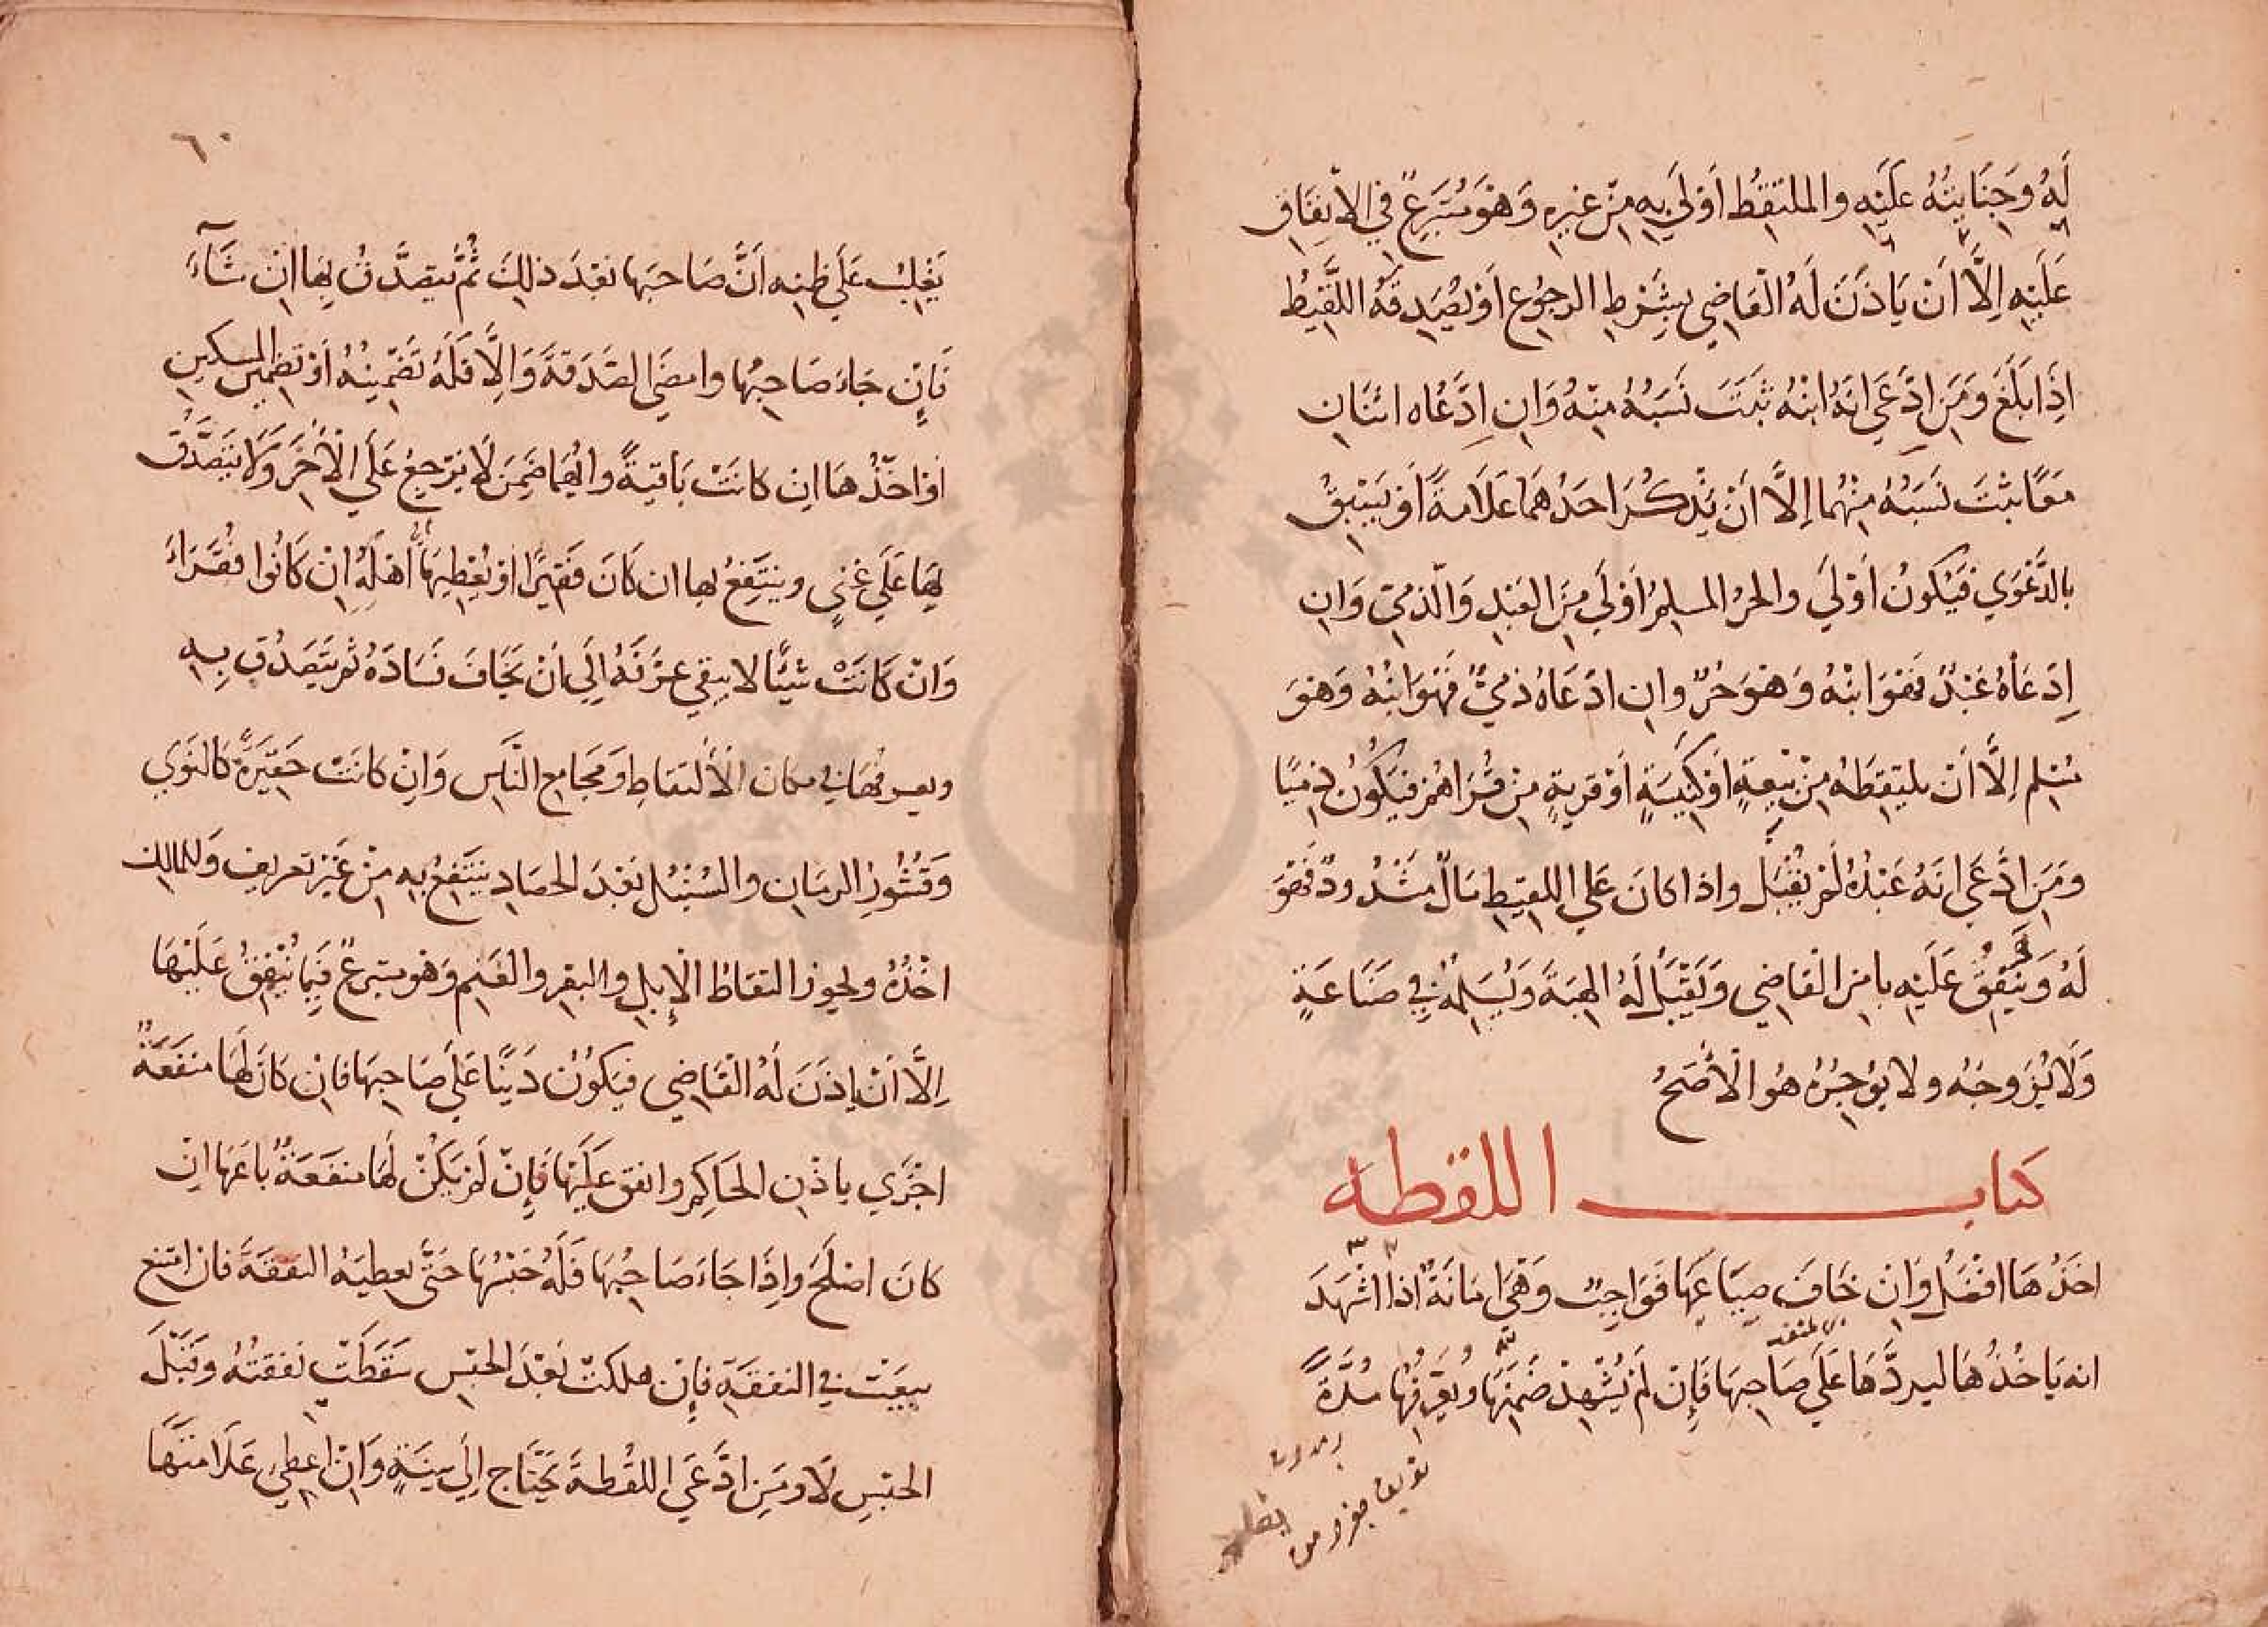 لَهُ وَجِنَايَتُهُ عَلَيْهِ والملتقِطُ أَوْلَي بِهِ مِنْ غيرِهِ وَهُوَ مُتَبَرِعٌ في الاِنفَاقِ
عَلَيْهِ اِلَّا أَنْ يَاذَنَ لَهُ القَاضِي بِشَرْطِ الرجُوُعِ أَوْ يُصَدِقَهُ اللَّقِيْطُ
اِذَا بَلَغَ وَمَنِ ادَّعَي انَهُ ابنُهُ ثَبَتَ نَسَبُهُ مِنْهُ وَانِ ادَّعَاه اثنَانِ
مَعًا ثبَتَ نَسَبُهُ مِنْهُما اِلَّا اَنْ يَذْكُرَ احَدُهمَا عَلَامَةً اَوْ يَسْبِقُ
بالدَّعْوَي فَيَكونُ أَوْلَي والحرُ المسلِمُ اَوْلَي مِنَ العَبْدِ وَالذمّيِ وَانِ
اِدّعَاهُ عَبْدٌ فَهْوَ ابنُهُ وَهْوَ حُرٌ وانِ ادّعَاهُ ذميٌ فَهُوَ ابْنُهُ وَهْوَ
مُسْلم اِلَّا أَنْ يلتقِطَهُ مِنْ بيْعَةٍ اَوْ كَنِيْسَةٍ أَوْ قريةٍ مِنْ قُرَاهُمْ فيَكُونُ ذِميًا
ومَنِ ادَّعَي انَهُ عَبْدُهُ لَمْ يُقْبَلْ واذا كانَ عَلي اللقيْطِ مَالٌ مَشْدُودٌ فَهْوَ
لَهُ وَيُنفِقُ عَلَيْهِ بامرِ القَاضِي وَيَقْبَلُ لَهُ الهِبَةَ وَيُسَلِمُهُ فِي صَنَاعَةٍ
وَلَا يُزَوجُهُ ولا يؤجِرُهُ هُوَ الْأَصَحُ
كتاب اللقطه
اخذُهَا افْضَلُ وَانِ خَافَ ضِيَاعَهَا فَوَاجِبٌ وَهْيَ امَانَةٌ اذَا اشْهَدَ
انه يَاخُذُهَا ليردَّهَا عَلَي صَاحِبِهَا فَاِنْ لَمْ يُشْهِدْ ضَمِنَهَا وَيُعَرِفُهَا مُدَّةً
٦٠
يَغْلِبُ عَلَي ظنِهِ أَنَّ صَاحبَها بَعْدَ ذلِكَ ثُمَّ يتصدَّقُ بِهَا انْ شَآءَ
فَاِنْ جَاءَ صَاحِبُها وامضَي الصَدَقَةَ وَاِلَّا فَلَهُ تَضْمِينُهُ أَوْ تَضْمِيْنُ المسكينِ
اوْ اخْذُهَا انِ كانَتْ بَاقيَةً وايُهُما ضَمِنَ لَا يَرْجِعُ عَلَي الْأَخَرِ وَلَا يَتَصَدَّقُ
بِهَا عَلَي غَنيٍ وينتَفِعُ بها ان كَانَ فَقِيْرًا اوْ يُعْطِيْهَا أَهْلَهُ اِنْ كَانُوا فُقَرَاءَ
وَانْ كَانَتْ شيئًا لا يبقي عرَّفَهُ اِلَي أَنْ يَخَافَ فَسَادَهُ ثم يَتَصَدُق بِهِ
ويعرفُهَا فِي مكان الْأَلتقاطِ وَمَجَامِعِ النَاسِ وَانِ كانَتْ حَقِيْرَةً كالنَوَي
وَقُشُوْرِ الرمَانِ والسُنْبُلِ بَعْدَ الحصَادِ ينتَفِعُ بِهِ مِنْ غَيْرِ تعريفٍ وَللمالك
اخْذُهُ ويجوز التقاطُ الْاِبلِ والبقرِ والغَنَمِ وَهوَ متبرعٌ فِيْمَا يُنْفِقُ عَلَيْهَا
اِلَّا أَنْ ياذَنَ لَهُ القَاضِي فيَكُوْنُ دَيْنًا عَلَي صَاحِبِهَا فاِنْ كَانَ لَهَا منفَعَةٌ
اجْرَي باذْنِ الحَاكِمِ وانفق عَلَيْهَا فَاِنْ لَمْ يَكُنْ لَهَا منفَعَةٌ بَاعَهَا انِ
كانَ اصْلَحَ وَاِذَا جَاءَ صَاحِبُهَا فَلَهُ حَبْسُهَا حَتَّي يعطيَهُ النفقَةَ فان امتنع
بيعَتْ فِي النفقَةِ فاِنْ هلكتْ بَعْدَ الحبْسِ سَقَطَتْ نفقتُهُ وَقَبْلَ
الحبْسِ لَا وَمَنِ ادَّعَي اللقْطةَ يَحْتَاج اِلَي بينَةٍ وَانْ اعطي عَلَامتَهَا